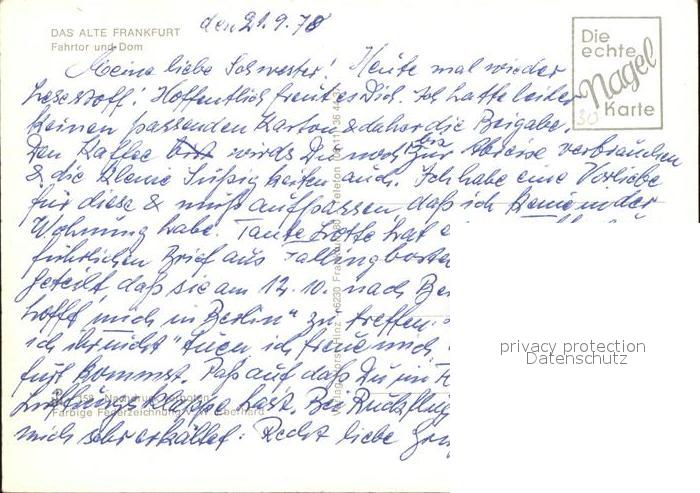 DAS ALTE FRANKFURT
Fahrtor und Dom
den 21.9.78
Die
echte
Nagel
Karte
30
Meine liebe Schwester! Heute mal wieder
Lesestoff! Hoffentlich freut es Dich. Ich hatte leider
keinen passenden Karton & daher die Beigabe.
Den Kaffee wirds Du noch bis zur Abreise verbrauchen
& die kleine Süßigkeiten auch. Ich habe eine Vorliebe
für diese & muß aufpassen daß ich keine in der
Wohnung habe. Tante Lotte hat
führlichen Brief aus Fallingbostel
geteilt daß sie am 12.10. nach Be
hofft "mich in Berlin" zu treffen.
ich ihr nicht ich freue mich
furt kommst. Paß auf daß Du im
Lüftungsklappe hast. Bei Rückflug
mich sehr erkältet. Recht liebe Grü
158 Nachdruck verboten
Farbige Federzeichnung v. W. Eberhard
Verlag Horst Hinz 6230 Frankfurt Telefon
privacy protection
Datenschutz